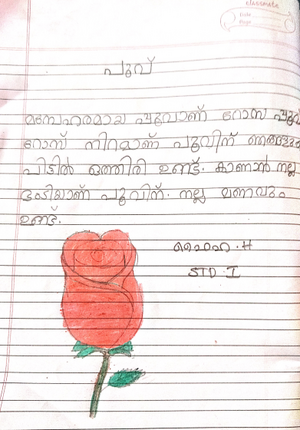 classmate
Date
Page
പൂവ്
മനോഹരമായ പൂവാണ് റോസ പൂവ്
റോസ് നിറമാണ് പൂവിന് ഞങ്ങളുടെ
പിട്ടിൽ ഒത്തിരി ഉണ്ട്. കാണാൻ നല്ല
ഭംഗിയാണ് പൂവിന്. നല്ല മണവും
ഉണ്ട്.
H
STD : I